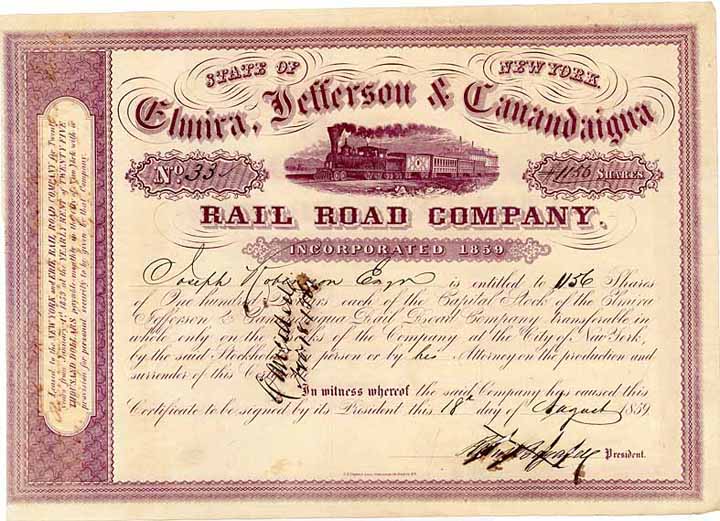 STATE OF NEW YORK
Elmira, Jefferson & Canandaigua
No. 33 1156 SHARES
RAIL ROAD COMPANY.
INCORPORATED 1859
Joseph Robinson Esqr is entitled to 1156 Shares
of One hundred Dollars each of the Capital Stock of the Elmira
Jefferson & Canandaigua Rail Road Company, transferable in
whole only on the Books of the Company at the City of New York,
by the said Stockholder in person or by his Attorney on the production and
surrender of this
In witness whereof the said Company has caused this
Certificate to be signed by its President this 18th day of August 1859
President.
Cancelled
Leased to the NEW YORK and ERIE RAIL ROAD COMPANY for Twenty
years from January 1st 1859 at the YEARLY RENT of TWENTY FIVE
THOUSAND DOLLARS payable monthly in the City of New York with a
provision for personal security to be given by that Company.